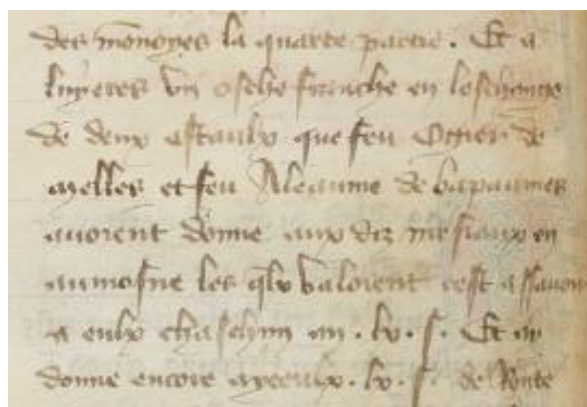 des mōnoyes la quarte partie . Et a
luyeres vn osche franche en leschange
de deux estaulx que feu Ogier de
ayelles et feu Aleaume de bapaumes
auoient donne aux diz mesiaux en
aumosne les qlx valoient cest assauoir
a eulx chaschun an . lx . s . Et ay
donne encore ayceulx . lx . s . de Rente